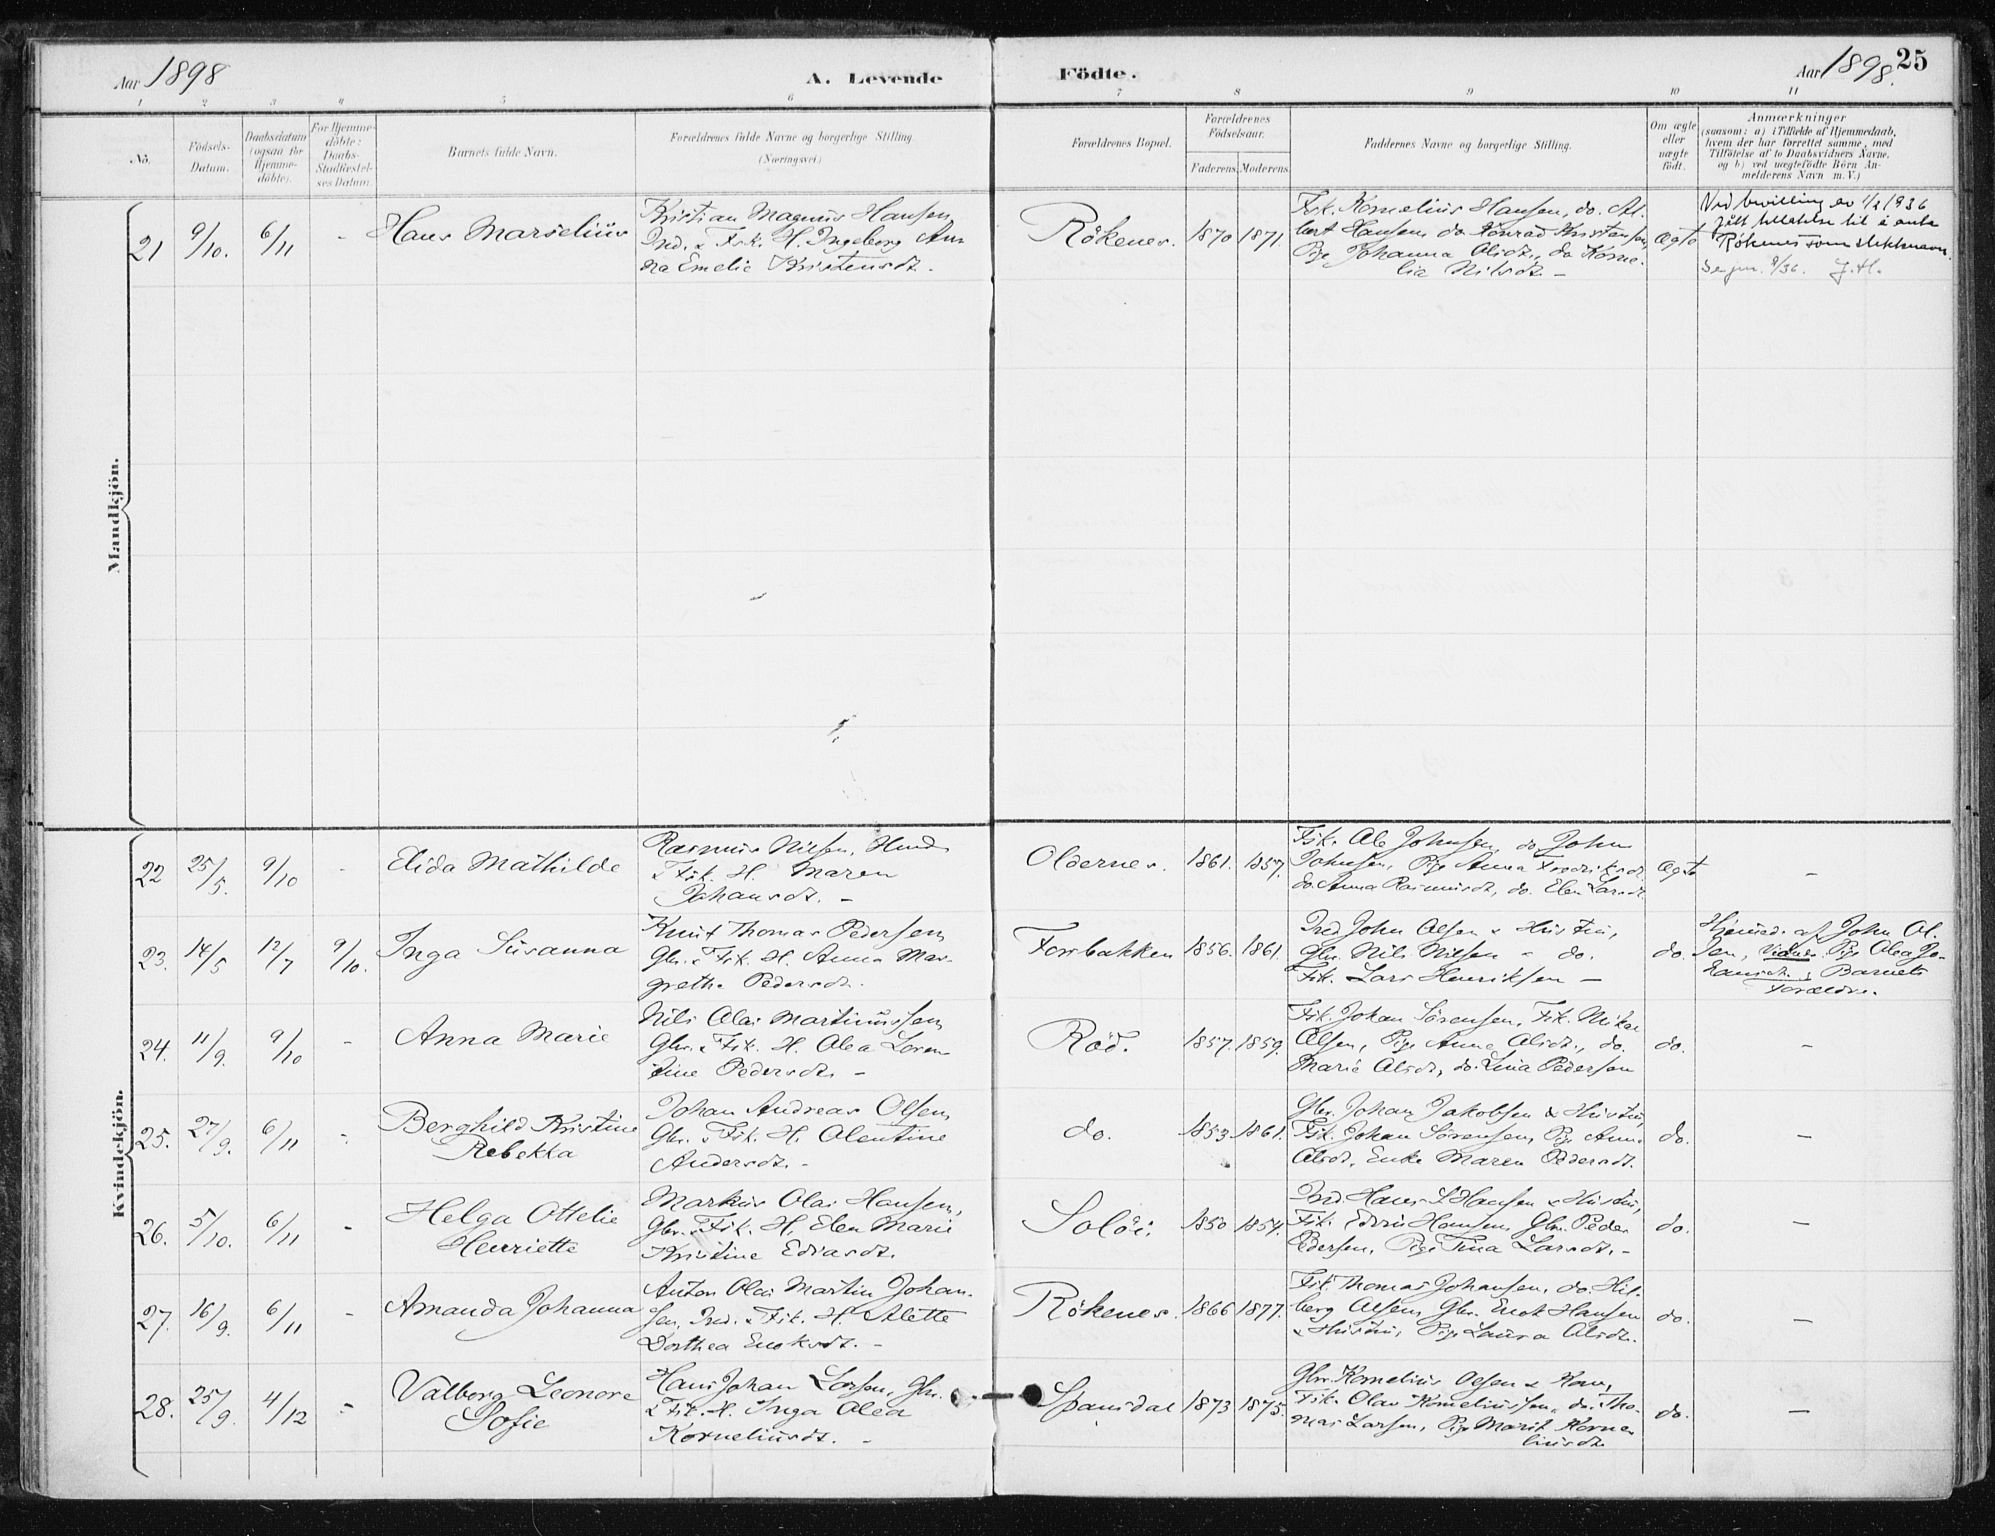 Aar 1898
A. Levende
Födte.
Aar 1898.
25
1 2 3 4 5 6 7 8 9 10 11
No.
Födsels-
Datum.
Daabsdatum
(ogsaa for
Hjemme-
döbte).
For Hjemme-
döbte:
Daabs-
Stadfæstel-
ses Datum.
Barnets fulde Navn.
Forældrenes fulde Navne og borgerlige Stilling.
(Næringsvei.)
Forældrenes Bopæl.
Forældrenes
Födselsaar.
Faderens. Moderens.
Faddernes Navne og borgerlige Stilling.
Om ægte
eller
uægte
födt.
Anmærkninger
(saasom: a) i Tilfælde af Hjemmedaab,
hvem der har forrettet samme, med
Tilföielse af to Daabsvidners Navne,
og b) ved uægtefödte Börn An-
melderens Navn m. V.)
Mandkjön.
21
9/10.
6/11
-
Hans Marselius
Kristian Magnus Hansen
Ind. & Fsk. H. Ingeborg An-
na Emelie Kristensdt.
Rökenes.
1870
1871.
Fsk. Kornelius Hansen, do. Al-
bert Hansen, do. Konrad Kristensen,
Pige Johanna Olsdt., do Korne-
lia Nilsdt. -
Ægte
Ved bevilling av 1/2 1936
fått tillatelse til å anta
Rökenes som slektsnavn.
Se jnr. 8/36. J.H.
Kvindekjön.
22
25/5.
9/10
-
Elida Mathilde
Rasmus Nilsen,
& Fsk. H. Maren
Johansdt. -
Oldernes.
1861.
1857.
Fsk. Ole Johnsen, do. John
Johnsen, Pige Anna Fredriksdt.
do. Anna Rasmusdt, do. Elen Larsdt
Ægte
-
23.
14/5
12/7
9/10.
Inga Susanna
Knut Thomas Pedersen,
Gbr. & Fsk. H. Anna Mar-
grethe Pedersdt.
Forrbakken
1856.
1861.
Ind John Olsen & Hustru,
Gbr. Nils Nilsen - do.
Fsk. Lars Henriksen -
do.
Hjemmed. af John Ol-
sen, Vidner Pige Olea Jo-
hansdt., Barnets
Forældre.
24.
11/9.
9/10
-
Anna Marie
Nils Olai Martinussen,
Gbr. & Fsk. H. Olea Loren-
tine Pedersdt. -
Röd.
1857.
1859.
Fsk. Johan Sörensen, Fsk. Nikolai
Olsen, Pige Anna Olsdt., do.
Marie Olsdt, do. Lina Pedersen
do.
-
25.
27/9.
6/11
-
Berghild Kristine
Rebekka
Johan Andreas Olsen,
Gbr. & Fsk. H. Olentine
Andersdt. -
do.
1853
1861.
Gbr. Johan Jakobsen & Hustru,
Fsk. Johan Sörensen, Pige Anna
Olsdt, Enke Maren Pedersdt.
do.
-
26.
5/10.
6/11
-
Helga Ottelie
Henriette
Markus Olai Hansen,
Gbr. & Fsk. H. Elen Marie
Kristine Ediasdt.
Solöi.
1850
1854.
Ind. Hans L Hansen & Hustru,
Fsk. Edvin Hansen, Gbr. Peder
Pedersen, Pige Tina Larsdt. -
do.
-
27.
16/9.
6/11
-
Amanda Johanna
Anton Olai Martin Johan-
sen, Ind. & Fsk. H. Alette
Dorthea Enoksdt. -
Rökenes.
1866
1877.
Fsk. Thomas Johansen, do. Hil-
berg Olsen, Gbr. Enok Hansen
& Hustru, Pige Laura Olsdt.
do.
-
28.
25/9.
4/12
-
Valborg Leonore
Sofie
Hans Johan Larsen, Gbr.
& Fsk. H. Inga Olea
Korneliusdt. -
Spansdal
1873
1875.
Gbr. Kornelius Olsen & Kone,
Fsk. Olav Korneliussen, do. Tho-
mas Larsen, Pige Marit Korne-
liusdt.
do.
-